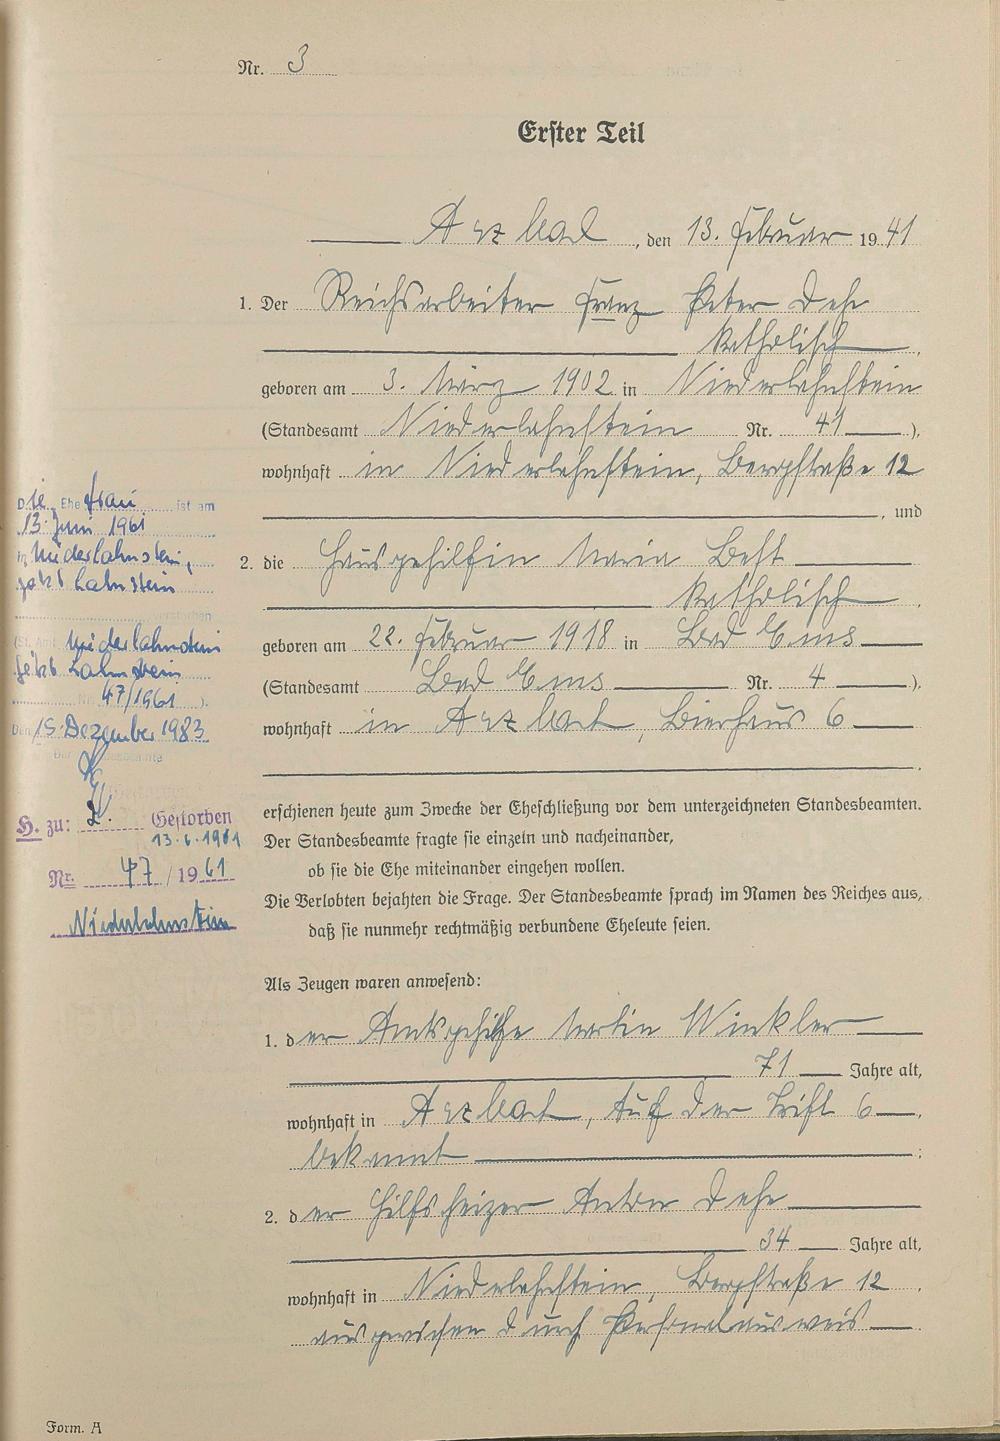 Nr. 3
Erster Teil
Arzbach, den 13. Februar 1941
1. Der Reichsarbeiter Franz Peter Dehe
katholisch,
geboren am 3. März 1902 in Niederlahnstein
(Standesamt Niederlahnstein Nr. 41),
wohnhaft in Niederlahnstein, Bergstraße 12
, und
2. die Hausgehilfin Maria Best
katholisch,
geboren am 22. Februar 1918 in Bad Ems
(Standesamt Bad Ems Nr. 4),
wohnhaft in Arzbach, Bierhaus 6
.
erschienen heute zum Zwecke der Eheschließung vor dem unterzeichneten Standesbeamten.
Der Standesbeamte fragte sie einzeln und nacheinander,
ob sie die Ehe miteinander eingehen wollen.
Die Verlobten bejahten die Frage. Der Standesbeamte sprach im Namen des Reiches aus,
daß sie nunmehr rechtmäßig verbundene Eheleute seien.
Als Zeugen waren anwesend:
1. der Amtsgehilfe Martin Winkler
71 Jahre alt,
wohnhaft in Arzbach, Auf der Trift 6,
bekannt;
2. der Hilfsheizer Anton Dehe
34 Jahre alt,
wohnhaft in Niederlahnstein, Bergstraße 12,
ausgewiesen durch Personalausweis
Die Ehefrau ist am
13. Juni 1961
in Niederlahnstein,
jetzt Lahnstein
verstorben
(St. Amt Niederlahnstein
jetzt Lahnstein
Nr. 47/1961).
Den 15. Dezember 1983
Der Standesbeamte
H. zu: 2. Gestorben
13.6.1961
Nr. 47/1961
Niederlahnstein
Form. A